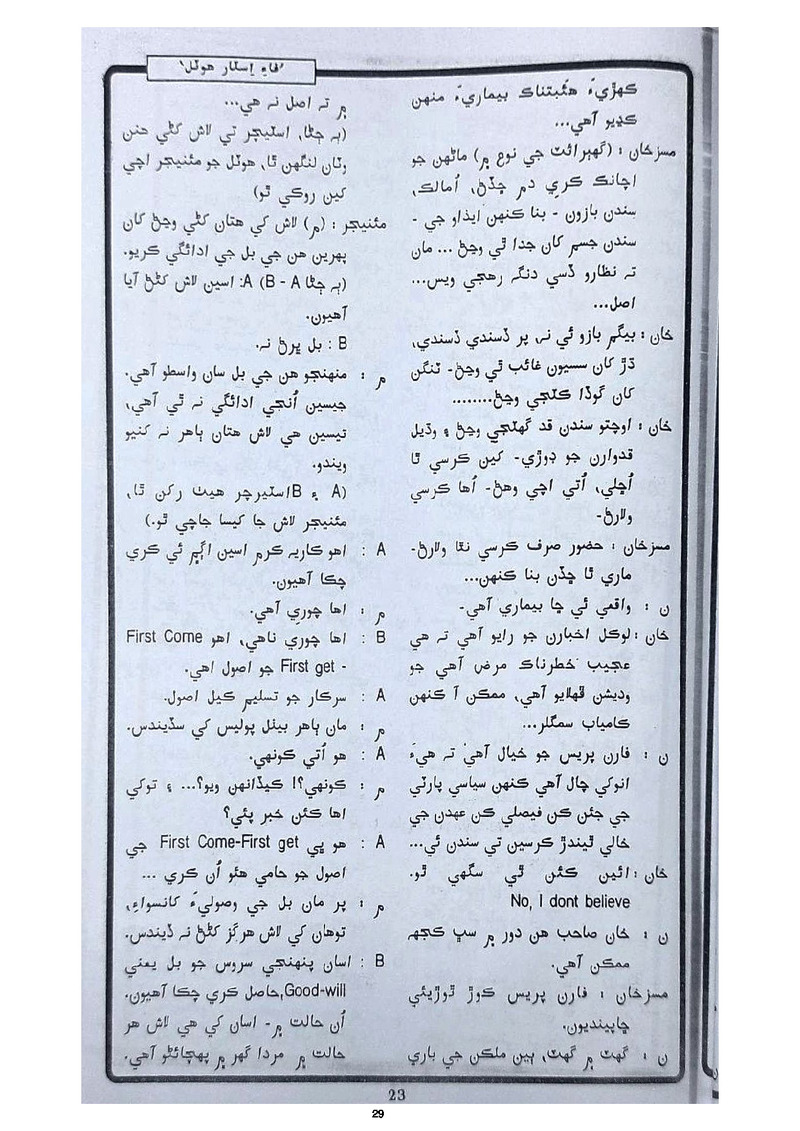 ’فاءِ اِسٽار هوٽل‘
ڪهڙيءَ هئبتناڪ بيماريءَ منهن
ڪڍيو آهي...
مسزخان : (گهبرائٽ جي نوع ۾) ماڻهن جو
اچانڪ ڪري دم ڇڏڻ، اُمالڪ،
سندن بازون - بنا ڪنهن ايذاو جي -
سندن جسم کان جدا ٿي وڃڻ ... مان
ته نظارو ڏسي دنگ رهجي ويس...
اصل...
خان : بيگم بازو ئي نه، پر ڏسندي ڏسندي،
ڌڙ کان سسيون غائب ٿي وڃڻ- ٽنگن
کان گوڏا ڪٽجي وڃڻ........
خان : اوچتو سندن قد گهٽجي وڃڻ ۽ وڌيل
قدوارن جو ڊوڙي- ڪين ڪرسي ٿا
اُڇلي، اُتي اچي وهڻ- اُها ڪرسي
والارڻ-
مسزخان : حضور صرف ڪرسي نٿا والارڻ-
ماري ٿا ڇڏن بنا ڪنهن...
ن : واقعي ئي ڇا بيماري آهي-
خان : لوڪل اخبارن جو رايو آهي ته هي
عجيب خطرناڪ مرض آهي جو
وديشن ڦهلايو آهي، ممڪن آ ڪنهن
ڪامياب سمگلر...
ن : فارن پريس جو خيال آهي ته هيءَ
انوکي چال آهي ڪنهن سياسي پارٽي
جي جئن ڪن فيصلي ڪن عهدن جي
خالي ٿيندڙ ڪرسين تي سندن ئي...
خان : ائين ڪئن ٿي سگهي ٿو.
No, I dont believe
ن : خان صاحب هن دور ۾ سڀ ڪجهه
ممڪن آهي.
مسزخان : فارن پريس ڪوڙ ٿوڙيئي
ڇاپيندیون.
ن : گهٽ ۾ گهٽ، ٻين ملڪن جي باري
۾ ته اصل نه هي...
(ٻه ڄڻا، اسٽيچر تي لاش کڻي هنن
وٽان لنگهن ٿا، هوٽل جو مئنيجر اچي
ڪين روڪي ٿو)
مئنيجر : (م) لاش کي هتان کڻي وڃڻ کان
پهرين هن جي بل جي ادائگي ڪريو.
(ٻه ڄڻا A - B) A: اسين لاش کڻڻ آيا
آهيون.
B : بل ڀرڻ نه.
م : منهنجو هن جي بل سان واسطو آهي.
جيسين اُنجي ادائگي نه ٿي آهي،
تيسين هي لاش هتان ٻاهر نه کنيو
ويندو.
(A ۽ B اسٽيرچر هيٺ رکن ٿا،
مئنيجر لاش جا کيسا جاچي ٿو.)
A : اهو ڪاريہ ڪرم اسين اڳ۾ ئي ڪري
چڪا آهيون.
م : اها چوري آهي.
B : اها چوري ناهي، اهو First Come
- First get جو اصول اهي.
A : سرڪار جو تسليم ڪيل اصول.
م : مان ٻاهر بيٺل پوليس کي سڏيندس.
A : هو اُتي ڪونهي.
م : ڪونهي؟! ڪيڏانهن ويو؟... ۽ توکي
اها ڪئن خبر پئي؟
A : هو پي First Come-First get جي
اصول جو حامي هئو اُن ڪري ...
م : پر مان بل جي وصوليءَ کانسواءِ،
توهان کي لاش هرگز کڻڻ نه ڏيندس.
B : اسان پنهنجي سروس جو بل يعني
Good-will،حاصل ڪري چڪا آهيون.
اُن حالت ۾- اسان کي هي لاش هر
حالت ۾ مردا گهر ۾ پهچائڻو آهي.
23
29